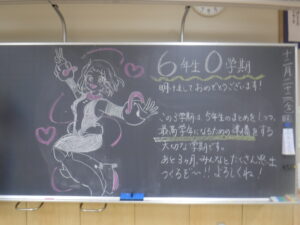 6年生0学期
明けましておめでとうございます!
この3学期は5年生のまとめをしつつ、
最高学年になるための準備をする
大切な学期です。
あと3ヶ月、みんなとたくさん思い出
つくるぞ〜!!よろしくね!